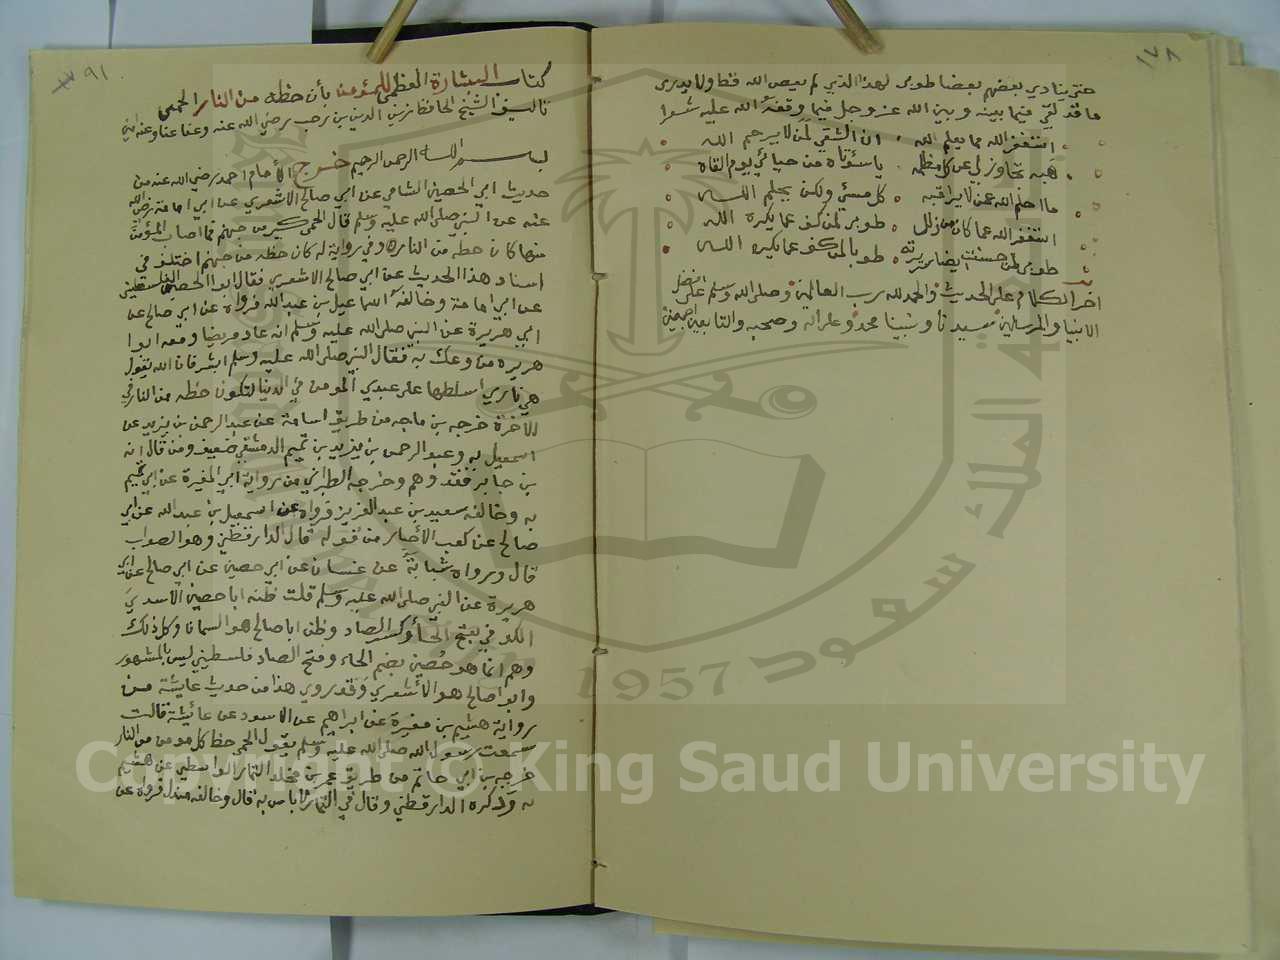 ١٧٨
حتى ينادي بعضهم بعضا طوبى لهذا الذي لم يعص الله قط ولا يدرى
ما قد لقي فيما بينه وبين الله عز وجل فيما وقفه الله عليه شعرا
استغفر الله مما يعلم الله . ان الشقي لمن لا يرحم الله
هبه تجاوز لي عن كل مظلمة . يا سؤتاه من حيائي يوم القاه
ما احلم الله عمن لا يراقبه . كل مسئ ولكن يحلم الله
استغفر الله مما كان من زلل . طوبى لمن كف عما يكره الله
طوبى لمن حسنت سريرته . طوبا لمن كف عما يكره الله
اخر الكلام على الحديث والحمد لله رب العالمين وصلى الله وسلم على افضل
الانبيا والمرسلين سيدنا ونبينا محمد وعلى اله وصحبه والتابعين اجمعين
٩١
كتاب البشارة العظمى للمؤمن بأن حظه من النار الحمى
تاليف الشيخ الحافظ زين الدين بن رجب رضي الله عنه وعفا عنا وعنه امين
بسم الله الرحمن الرحيم خرج الأمام احمد رضي الله عنه من
حديث ابي الحصين الشامي عن ابي صالح الاشعري عن ابي امامة رضي الله
عنه عن النبي صلى الله عليه وسلم قال الحمى كير من جهنم فما اصاب المؤمن
منها كان حظه من النار وفي رواية له كان حظه من جهنم اختلف في
اسناد هذا الحديث عن ابي صالح الاشعري فقال ابو الحصين الفلسطيني
عن ابي امامة وخالفه اسماعيل بن عبد الله فرواه عن ابي صالح عن
ابي هريرة عن النبي صلى الله عليه وسلم انه عاد مريضا ومعه ابوا
هريره من وعك به فقال النبي صلى الله عليه وسلم ابشر فان الله يقول
هي ناري اسلطها على عبدي المومن في الدنيا لتكون حظه من النار في
الآخرة خرجه بن ماجه من طريق اسامة عن عبد الرحمن بن يزيد عن
اسمعيل به وعبد الرحمن بن يزيد بن تميم الدمشقي ضعيف ومن قال انه
بن جابر فقد وهم وخرجه الطبراني من رواية ابي المغيرة عن ابن تميم
به وخالفه سعيد بن عبد العزيز فرواه عن اسمعيل بن عبد الله عن ابي
صالح عن كعب الأحبار من قوله قال الدارقطني وهو الصواب
قال ورواه شبابة عن غسان عن ابي حصين عن ابي صالح عن ابي
هريرة عن النبي صلى الله عليه وسلم قلت ظنه ابا حصين الاسدي
الكوفي بفتح الحا وكسر الصاد وظن ابا صالح هو السمانا وكل ذلك
وهم انما هو حُصين بضم الحاء وفتح الصاد فلسطيني ليس بالمشهور
وابو صالح هو الأشعري وقد روي هذا من حديث عايشة من
رواية هشيم بن مغيرة عن ابراهيم عن الاسود عن عائشة قالت
سمعت رسول الله صلى الله عليه وسلم يقول الحمى حظ كل مومن من النار
خرجه بن ابي حاتم من طريق عمر بن مخلد التمار الواسطي عن هشيم
به وذكره الدارقطني وقال في التمار لا باس به قال وخالفه مندل فرواه عن
Copyright © King Saud University
1957